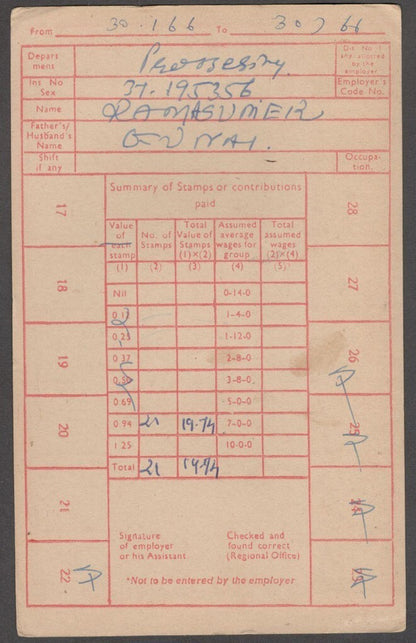 From 30.1.66 To 30.7.66
Depart
ments Processing.
Dis. No. I
any allotted
by the
employer
Ins No
Sex 37.195356
Employer's
Code No.
Name RAMASUMER
Father's/
Husband's
Name
Shift
if any
Occupa-
tion.
Summary of Stamps or contributions
paid
Value
of
each
stamp
No. of
Stamps
Total
Value of
Stamps
(1)×(2)
Assumed
average
wages for
group
Total
assumed
wages
(2)×(4)
(1) (2) (3) (4) (5)
Nil 0-14-0
0.12 1-4-0
0.25 1-12-0
0.37 2-8-0
3-8-0
0.69 5-0-0
0.94 21 19-74 7-0-0
1.25 10-0-0
Total 21 19-74
17
18
19
20
21
22
28
27
26
25
24
23
Signature
of employer
or his Assistant
Checked and
found correct
(Regional Office)
*Not to be entered by the employer